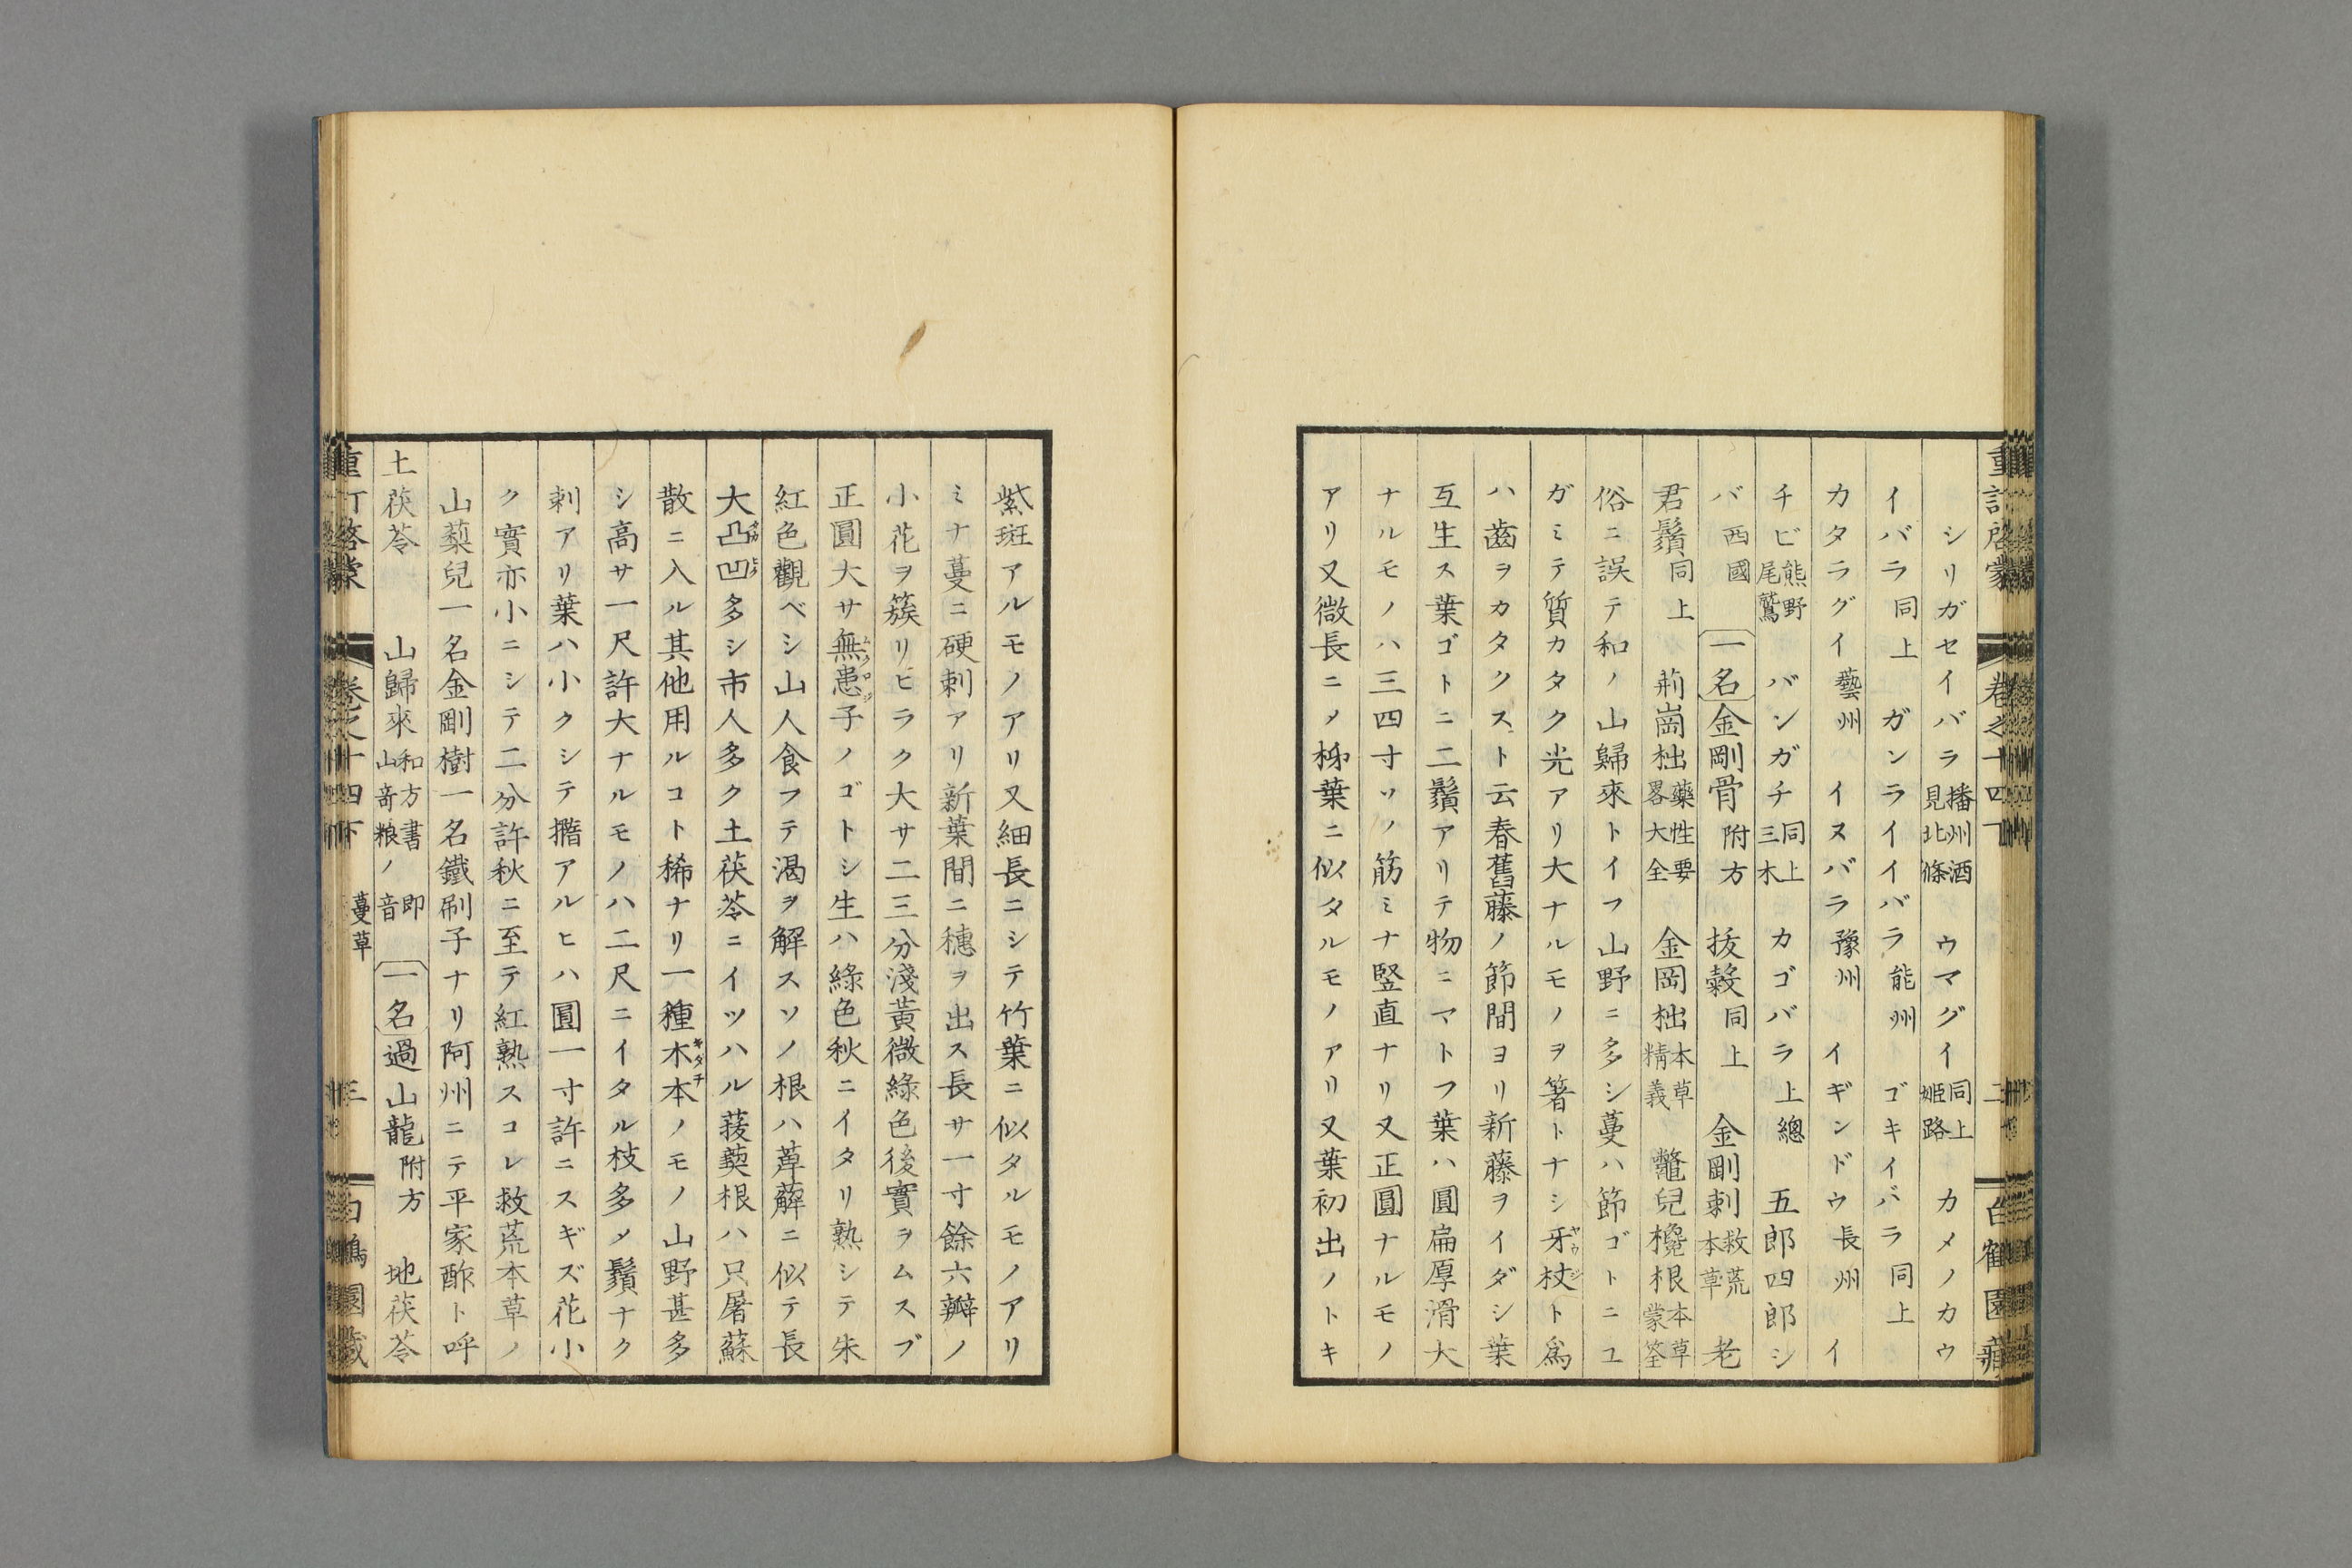 重訂啓蒙 卷之十四下 二 白鶴園藏
シリガセイバラ 播州酒見北條 ウマグイ 同上姫路 カメノカウ
イバラ 同上 ガンライイバラ 能州 ゴキイバラ 同上
カタラグイ 藝州 イヌバラ 豫州 イギンドウ 長州 イ
チビ 熊野尾鷲 バンガチ 同上三木 カゴバラ 上總 五郎四郎シ
バ 西國 一名 金剛骨 附方 拔葜 同上 金剛刺 救荒本草 老
君鬚 同上 荊崗柮 藥性要畧大全 金岡柮 本草精義 鼈兒欃根 本草蒙筌
俗ニ誤テ和ノ山歸來トイフ山野ニ多シ蔓ハ節ゴトニユ
ガミテ質カタク光アリ大ナルモノヲ箸トナシ牙杖ト爲
ハ齒ヲカタクスト云春舊藤ノ節間ヨリ新藤ヲイダシ葉
互生ス葉ゴトニ二鬚アリテ物ニマトフ葉ハ圓扁厚滑大
ナルモノハ三四寸ソノ筋ミナ竪直ナリ又正圓ナルモノ
アリ又微長ニノ柹葉ニ似タルモノアリ又葉初出ノトキ
紫斑アルモノアリ又細長ニシテ竹葉ニ似タルモノアリ
ミナ蔓ニ硬刺アリ新葉間ニ穗ヲ出ス長サ一寸餘六瓣ノ
小花ヲ簇リヒラク大サ二三分淺黃微綠色後實ヲムスブ
正圓大サ無患子ノゴトシ生ハ綠色秋ニイタリ熟シテ朱
紅色觀ベシ山人食フテ渴ヲ解スソノ根ハ萆薢ニ似テ長
大凸凹多シ市人多ク土茯苓ニイツハル菝葜根ハ只屠蘇
散ニ入ル其他用ルコト稀ナリ一種木本ノモノ山野甚多
シ高サ一尺許大ナルモノハ二尺ニイタル枝多メ鬚ナク
刺アリ葉ハ小クシテ撍アルヒハ圓一寸許ニスギズ花小
ク實亦小ニシテ二分許秋ニ至テ紅熟スコレ救荒本草ノ
山蔾兒一名金剛樹一名鐵刷子ナリ阿州ニテ平家酢ト呼
土茯苓 山歸來 和方書即山竒粮ノ音 一名 過山龍 附方 地茯苓
重訂啓蒙 卷之十四下 蔓草 三 白鶴園藏